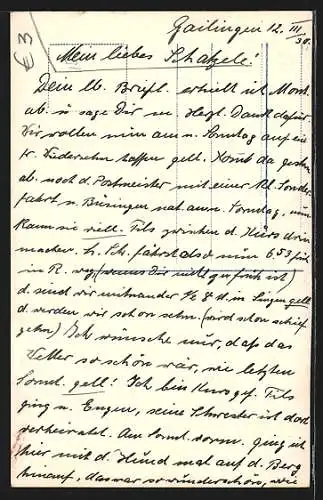 Gailingen 12. III 30.
€3
Mein liebes Schatzele!
Dein lb. Briefl. erhielt ich Mont.
ab. u sage Dir m. Herzl. Dank dafür
Wir wollen nun am n. Sonntag auf ein
fr. Wiedersehn hoffen gell. Komt da gestern
ab. noch d. Postmeister mit einer kl. Sonder
fahrt n. Büsingen nat. am Sonntag, nun
kann sie viell. Fils zwischen d. Kurs drin
machen. L. Sch. fährst also nun 6 53 früh
in R. weg (wenns Dir nicht zu früh ist)
d. sind wir mitnander 1/2 8 U. in Singen gell
d. werden wir schon sehn. (wird schon schief
gehn) Ich wünsche mir, daß das
Wetter so schön wär, wie letzten
Sonnt. gell! Ich bin Kurs gef. Fils
ging n. Engen, seine Schwester ist dort
verheiratet. Am Sonnt. vorm. ging ich
hier mit d. Hund mal auf d. Berg
hinauf, das war so wunderschön, wie